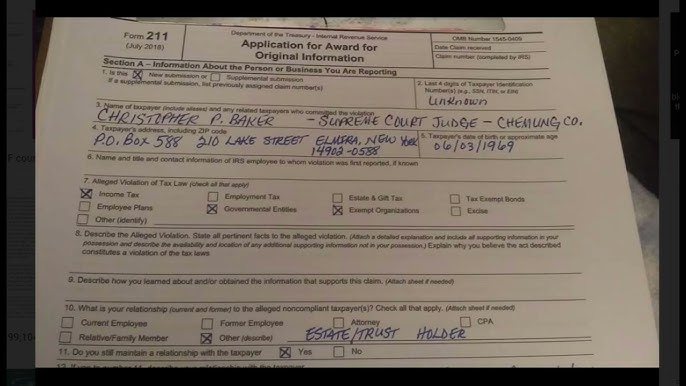 Form 211
(July 2018)
Department of the Treasury - Internal Revenue Service
Application for Award for
Original Information
OMB Number 1545-0409
Date Claim received
Claim number (completed by IRS)
Section A – Information About the Person or Business You Are Reporting
1. Is this New submission or Supplemental submission
If a supplemental submission, list previously assigned claim number(s)
2. Last 4 digits of Taxpayer Identification
Number(s) (e.g., SSN, ITIN, or EIN)
Unknown
3. Name of taxpayer (include aliases) and any related taxpayers who committed the violation
CHRISTOPHER P. BAKER – SUPREME COURT JUDGE – CHEMUNG CO.
4. Taxpayer's address, including ZIP code
P.O. BOX 588 210 LAKE STREET ELMIRA, NEW YORK
14902-0588
5. Taxpayer's date of birth or approximate age
06/03/1969
6. Name and title and contact information of IRS employee to whom violation was first reported, if known
7. Alleged Violation of Tax Law (check all that apply)
Income Tax Employment Tax Estate & Gift Tax Tax Exempt Bonds
Employee Plans Governmental Entities Exempt Organizations Excise
Other (identify)
8. Describe the Alleged Violation. State all pertinent facts to the alleged violation. (Attach a detailed explanation and include all supporting information in your
possession and describe the availability and location of any additional supporting information not in your possession.) Explain why you believe the act described
constitutes a violation of the tax laws
9. Describe how you learned about and/or obtained the information that supports this claim. (Attach sheet if needed)
10. What is your relationship (current and former) to the alleged noncompliant taxpayer(s)? Check all that apply. (Attach sheet if needed)
Current Employee Former Employee Attorney CPA
Relative/Family Member Other (describe) ESTATE/TRUST HOLDER
11. Do you still maintain a relationship with the taxpayer Yes No